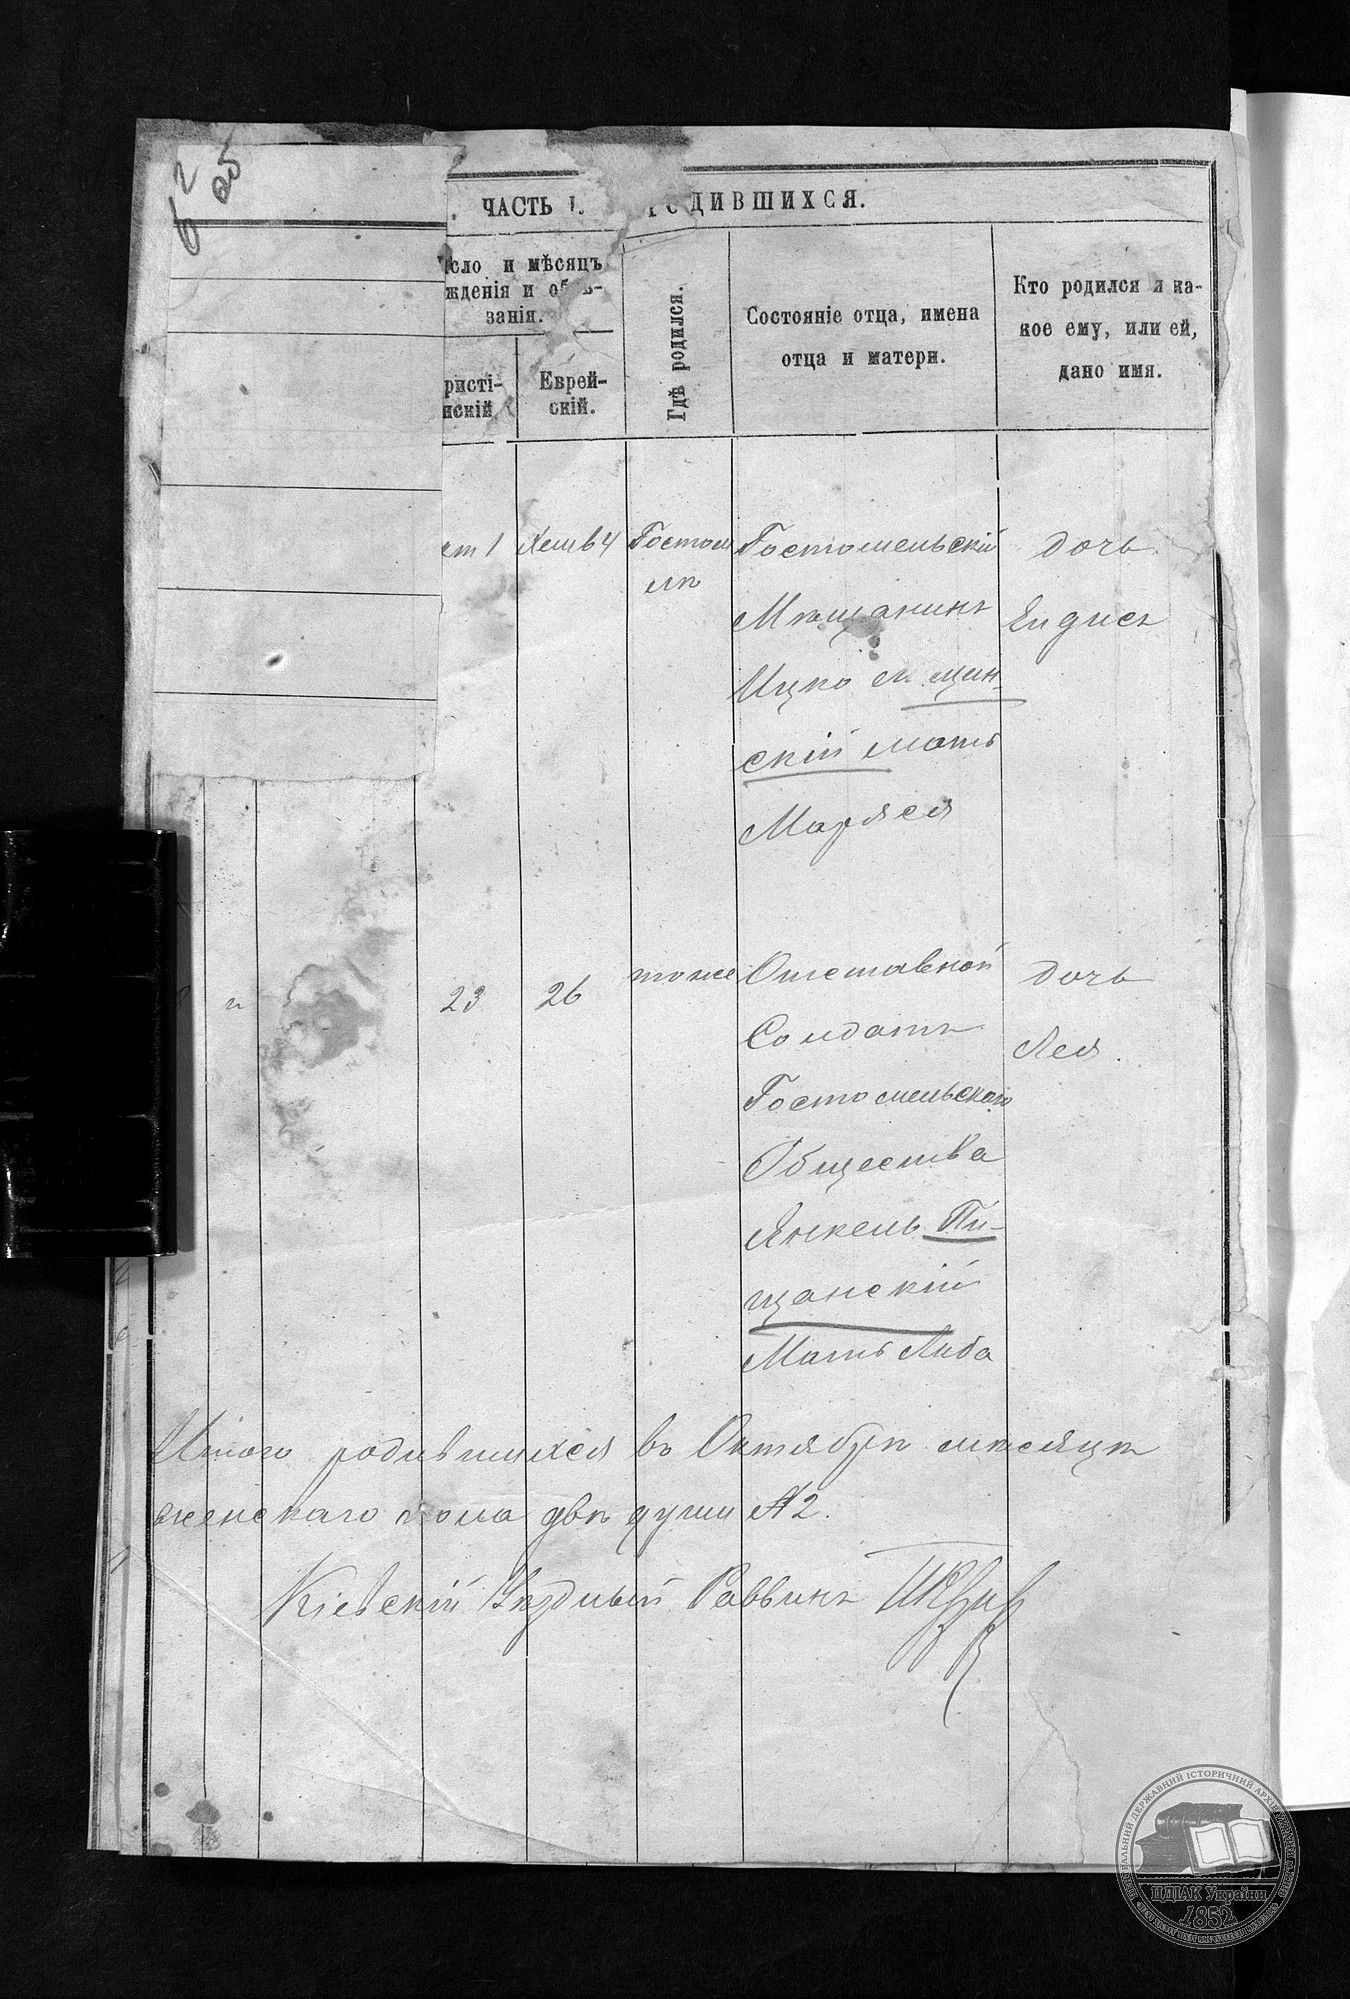 62
25
ЧАСТЬ I. РОДИВШИХСЯ.
сло и мѣсяцъ
жденія и обрѣ-
занія.
ристі-
нскій
Еврей-
скій.
Гдѣ родился.
Состояніе отца, имена
отца и матери.
Кто родился и ка-
кое ему, или ей,
дано имя.
кт 1
Хешв 4
Гостом
лѣ
Гостомельскій
Мѣщанинъ
Ицко щин-
скій мать
Маряся
дочь
Ендись
23
26
тоже
Отставной
Солдатъ
Гостомельскаго
Общества
Янкель Пи-
щанскій
Мать Либа
дочь
Лея.
Итого родившихся въ Октябрѣ мѣсяцѣ
женскаго пола двѣ души № 2.
Кіевскій Уѣздный Раввинъ
ЦДІАК України
1852